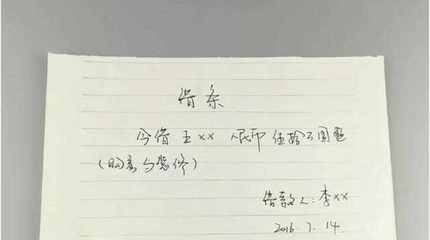 借条
今借王xx 人民币 伍拾万圆整
(购房与装修)
借款人：李xx
2016.7.14